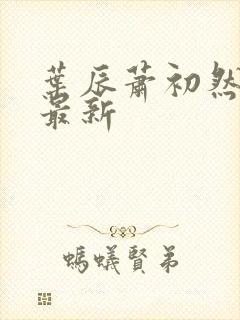 葉辰蕭初然
最新
螞蟻賢弟